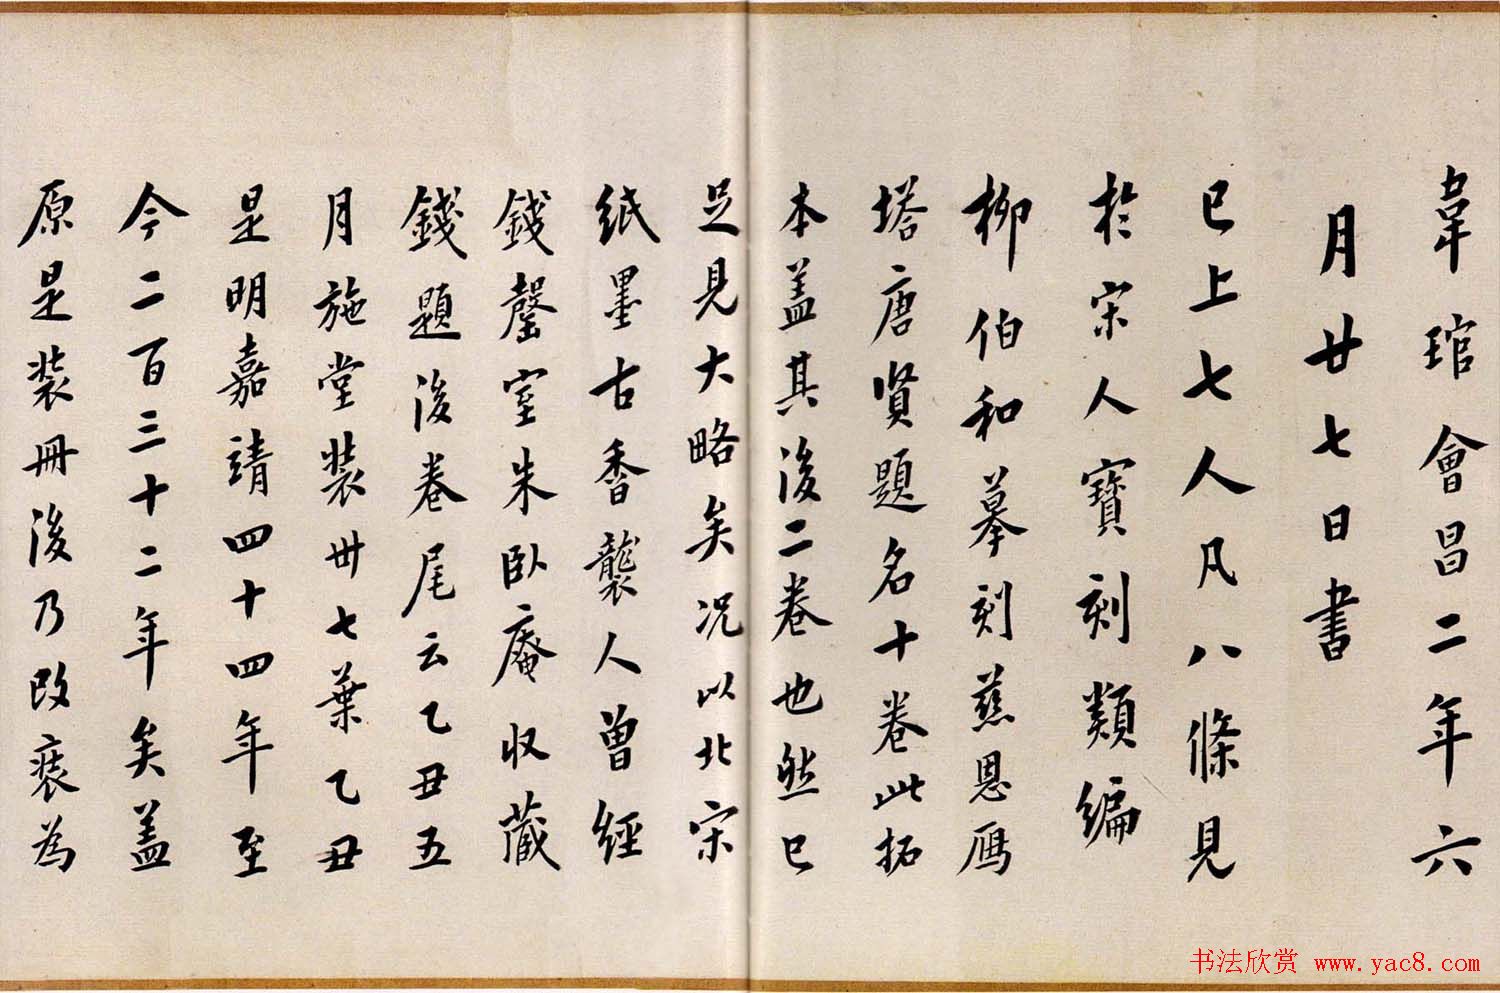 韋琯會昌二年六
月廿七日書
已上七人凡八條見
於宋人寶刻類編
柳伯和摹刻慈恩鴈
塔唐賢題名十卷此拓
本蓋其後二卷也然已
足見大略矣况以北宋
紙墨古香襲人曾經
錢罄室朱臥庵收藏
錢題後卷尾云乙丑五
月施堂裝卅七葉乙丑
是明嘉靖四十四年至
今二百三十二年矣蓋
原是裝冊後乃改裱為
书法欣赏 www.yac8.com